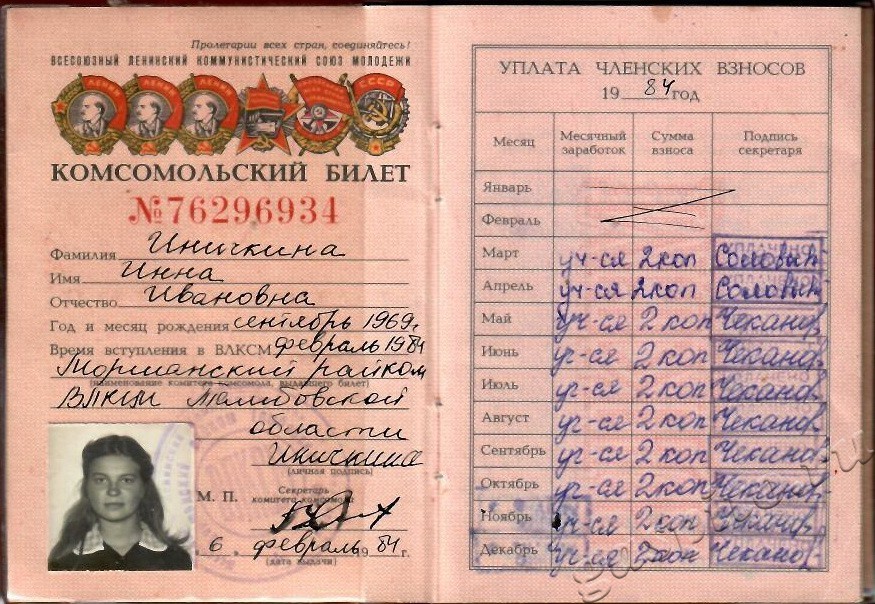 Пролетарии всех стран, соединяйтесь!
ВСЕСОЮЗНЫЙ ЛЕНИНСКИЙ КОММУНИСТИЧЕСКИЙ СОЮЗ МОЛОДЕЖИ
ЛЕНИН ЛЕНИН ЛЕНИН СССР
КОМСОМОЛЬСКИЙ БИЛЕТ
№76296934
Фамилия Иничкина
Имя Инна
Отчество Ивановна
Год и месяц рождения сентябрь 1969г
Время вступления в ВЛКСМ февраль 1984
Моршанский райком
(наименование комитета комсомола, выдавшего билет)
ВЛКСМ Тамбовской
области
Иничкина
(личная подпись)
М. П. Секретарь
комитета комсомола
6 февраль 1984 г.
(дата выдачи)
УПЛАТА ЧЛЕНСКИХ ВЗНОСОВ
1984 год
Месяц Месячный заработок Сумма взноса Подпись секретаря
Январь
Февраль
Март уч-ся 2 коп
Апрель уч-ся 2 коп
Май уч-ся 2 коп Чеканов
Июнь уч-ся 2 коп Чеканов
Июль уч-ся 2 коп Чеканов
Август уч-ся 2 коп Чеканов
Сентябрь уч-ся 2 коп Чеканов
Октябрь уч-ся 2 коп Чеканов
Ноябрь уч-ся 2 коп Чеканов
Декабрь уч-ся 2 коп Чеканов